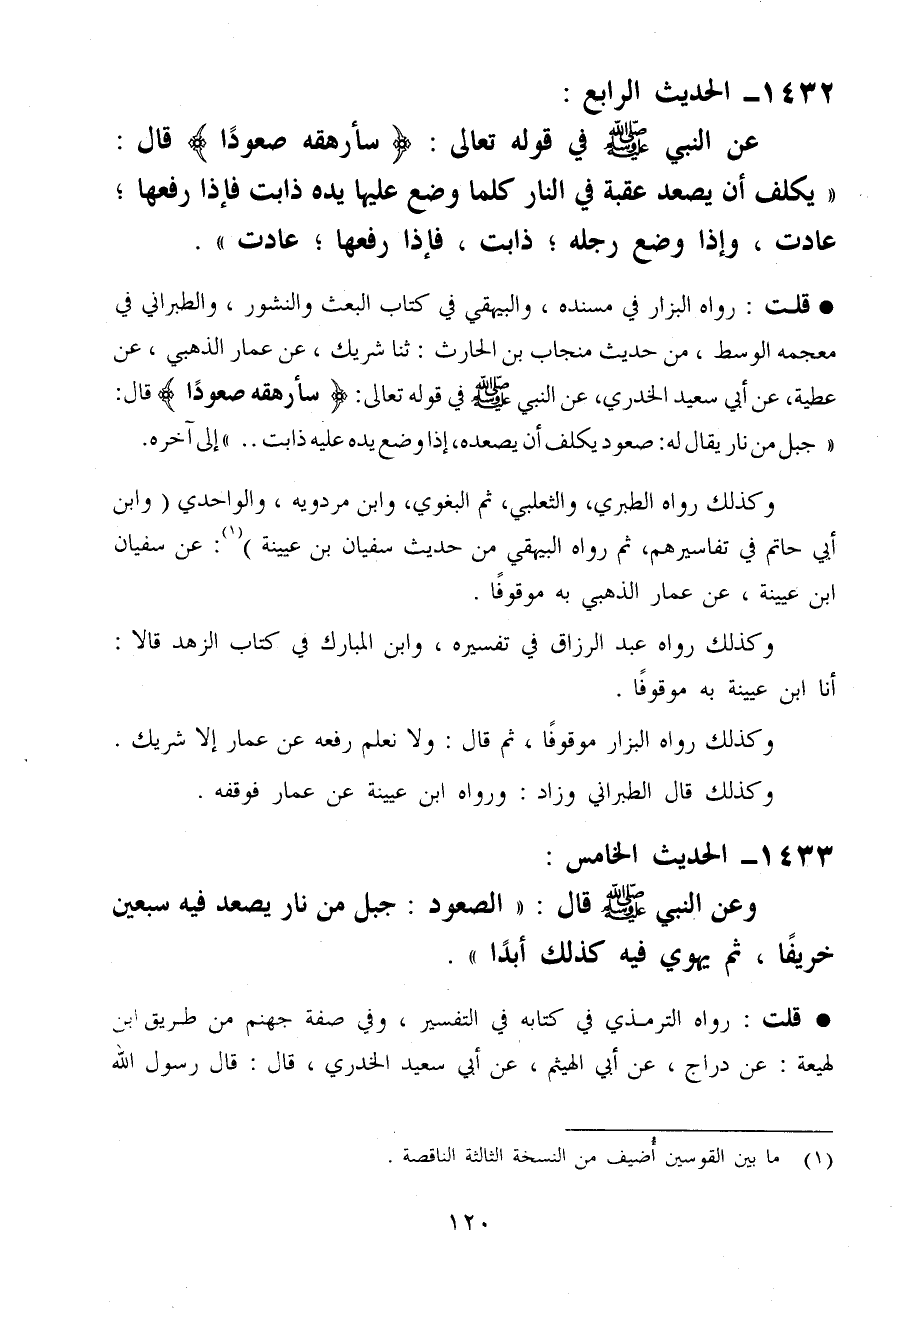 ١٤٣٢ـ الحديث الرابع :
عن النبي ﷺ في قوله تعالى : ﴿ سأرهقه صعودًا ﴾ قال :
« يكلف أن يصعد عقبة في النار كلما وضع عليها يده ذابت فإذا رفعها ؛
عادت ، وإذا وضع رجله ؛ ذابت ، فإذا رفعها ؛ عادت » .
● قلت : رواه البزار في مسنده ، والبيهقي في كتاب البعث والنشور ، والطبراني في
معجمه الوسط ، من حديث منجاب بن الحارث : ثنا شريك ، عن عمار الذهبي ، عن
عطية، عن أبي سعيد الخدري، عن النبي ﷺ في قوله تعالى: ﴿ سأرهقه صعودًا ﴾ قال:
« جبل من نار يقال له: صعود يكلف أن يصعده، إذا وضع يده عليه ذابت .. » إلى آخره.
وكذلك رواه الطبري، والثعلبي، ثم البغوي، وابن مردويه ، والواحدي ( وابن
أبي حاتم في تفاسيرهم، ثم رواه البيهقي من حديث سفيان بن عيينة )(١): عن سفيان
ابن عيينة ، عن عمار الذهبي به موقوفًا .
وكذلك رواه عبد الرزاق في تفسيره ، وابن المبارك في كتاب الزهد قالا :
أنا ابن عيينة به موقوفًا .
وكذلك رواه البزار موقوفًا ، ثم قال : ولا نعلم رفعه عن عمار إلا شريك .
وكذلك قال الطبراني وزاد : ورواه ابن عيينة عن عمار فوقفه .
١٤٣٣ـ الحديث الخامس :
وعن النبي ﷺ قال : « الصعود : جبل من نار يصعد فيه سبعين
خريفًا ، ثم يهوي فيه كذلك أبدًا » .
● قلت : رواه الترمذي في كتابه في التفسير ، وفي صفة جهنم من طريق ابن
لهيعة : عن دراج ، عن أبي الهيثم ، عن أبي سعيد الخدري ، قال : قال رسول الله
(١) ما بين القوسين أُضيف من النسخة الثالثة الناقصة .
١٢٠